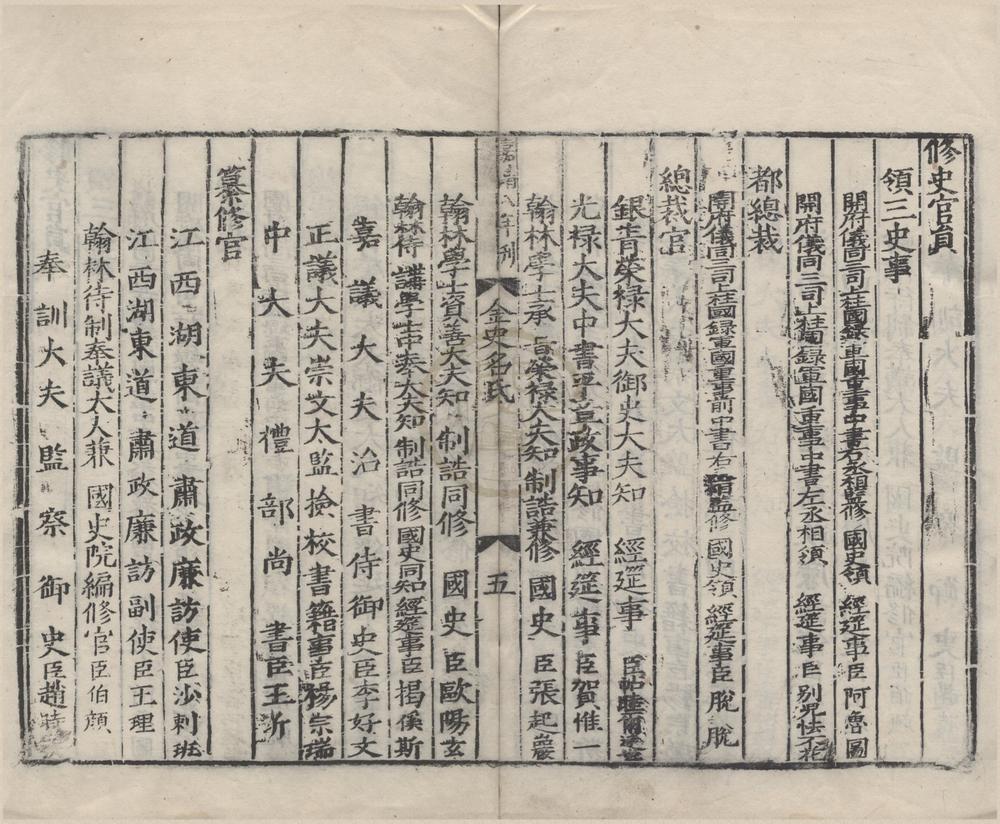 修史官員
領三史事
開府儀同三司上柱國錄軍國重事中書右丞相監修 國史領 經筵事臣阿魯圖
開府儀同三司上柱國錄軍國重事中書左丞相領 經筵事臣別兒怯不花
都總裁
開府儀同三司上柱國錄軍國重事前中書右丞相監修 國史領 經筵事臣脫脫
總裁官
銀青榮祿大夫御史大夫知 經筵事臣帖睦爾達世
光祿大夫中書平章政事知 經筵事臣賀惟一
翰林學士承 旨榮祿大夫知 制誥兼修 國史臣張起巖
嘉靖八年刊 金史名氏 五
翰林學士資善大夫知 制誥同修 國史臣歐陽玄
翰林侍講學士中奉大夫知 制誥同修 國史同知經筵事臣揭傒斯
嘉議大夫治書侍御史臣李好文
正議大夫崇文太監檢校書籍事臣楊宗瑞
中大夫禮部尚書臣王沂
纂修官
江西湖東道肅政廉訪使臣沙剌班
江西湖東道肅政廉訪副使臣王理
翰林待制奉議大夫兼 國史院編修官臣伯顏
奉訓大夫監察御史臣趙時